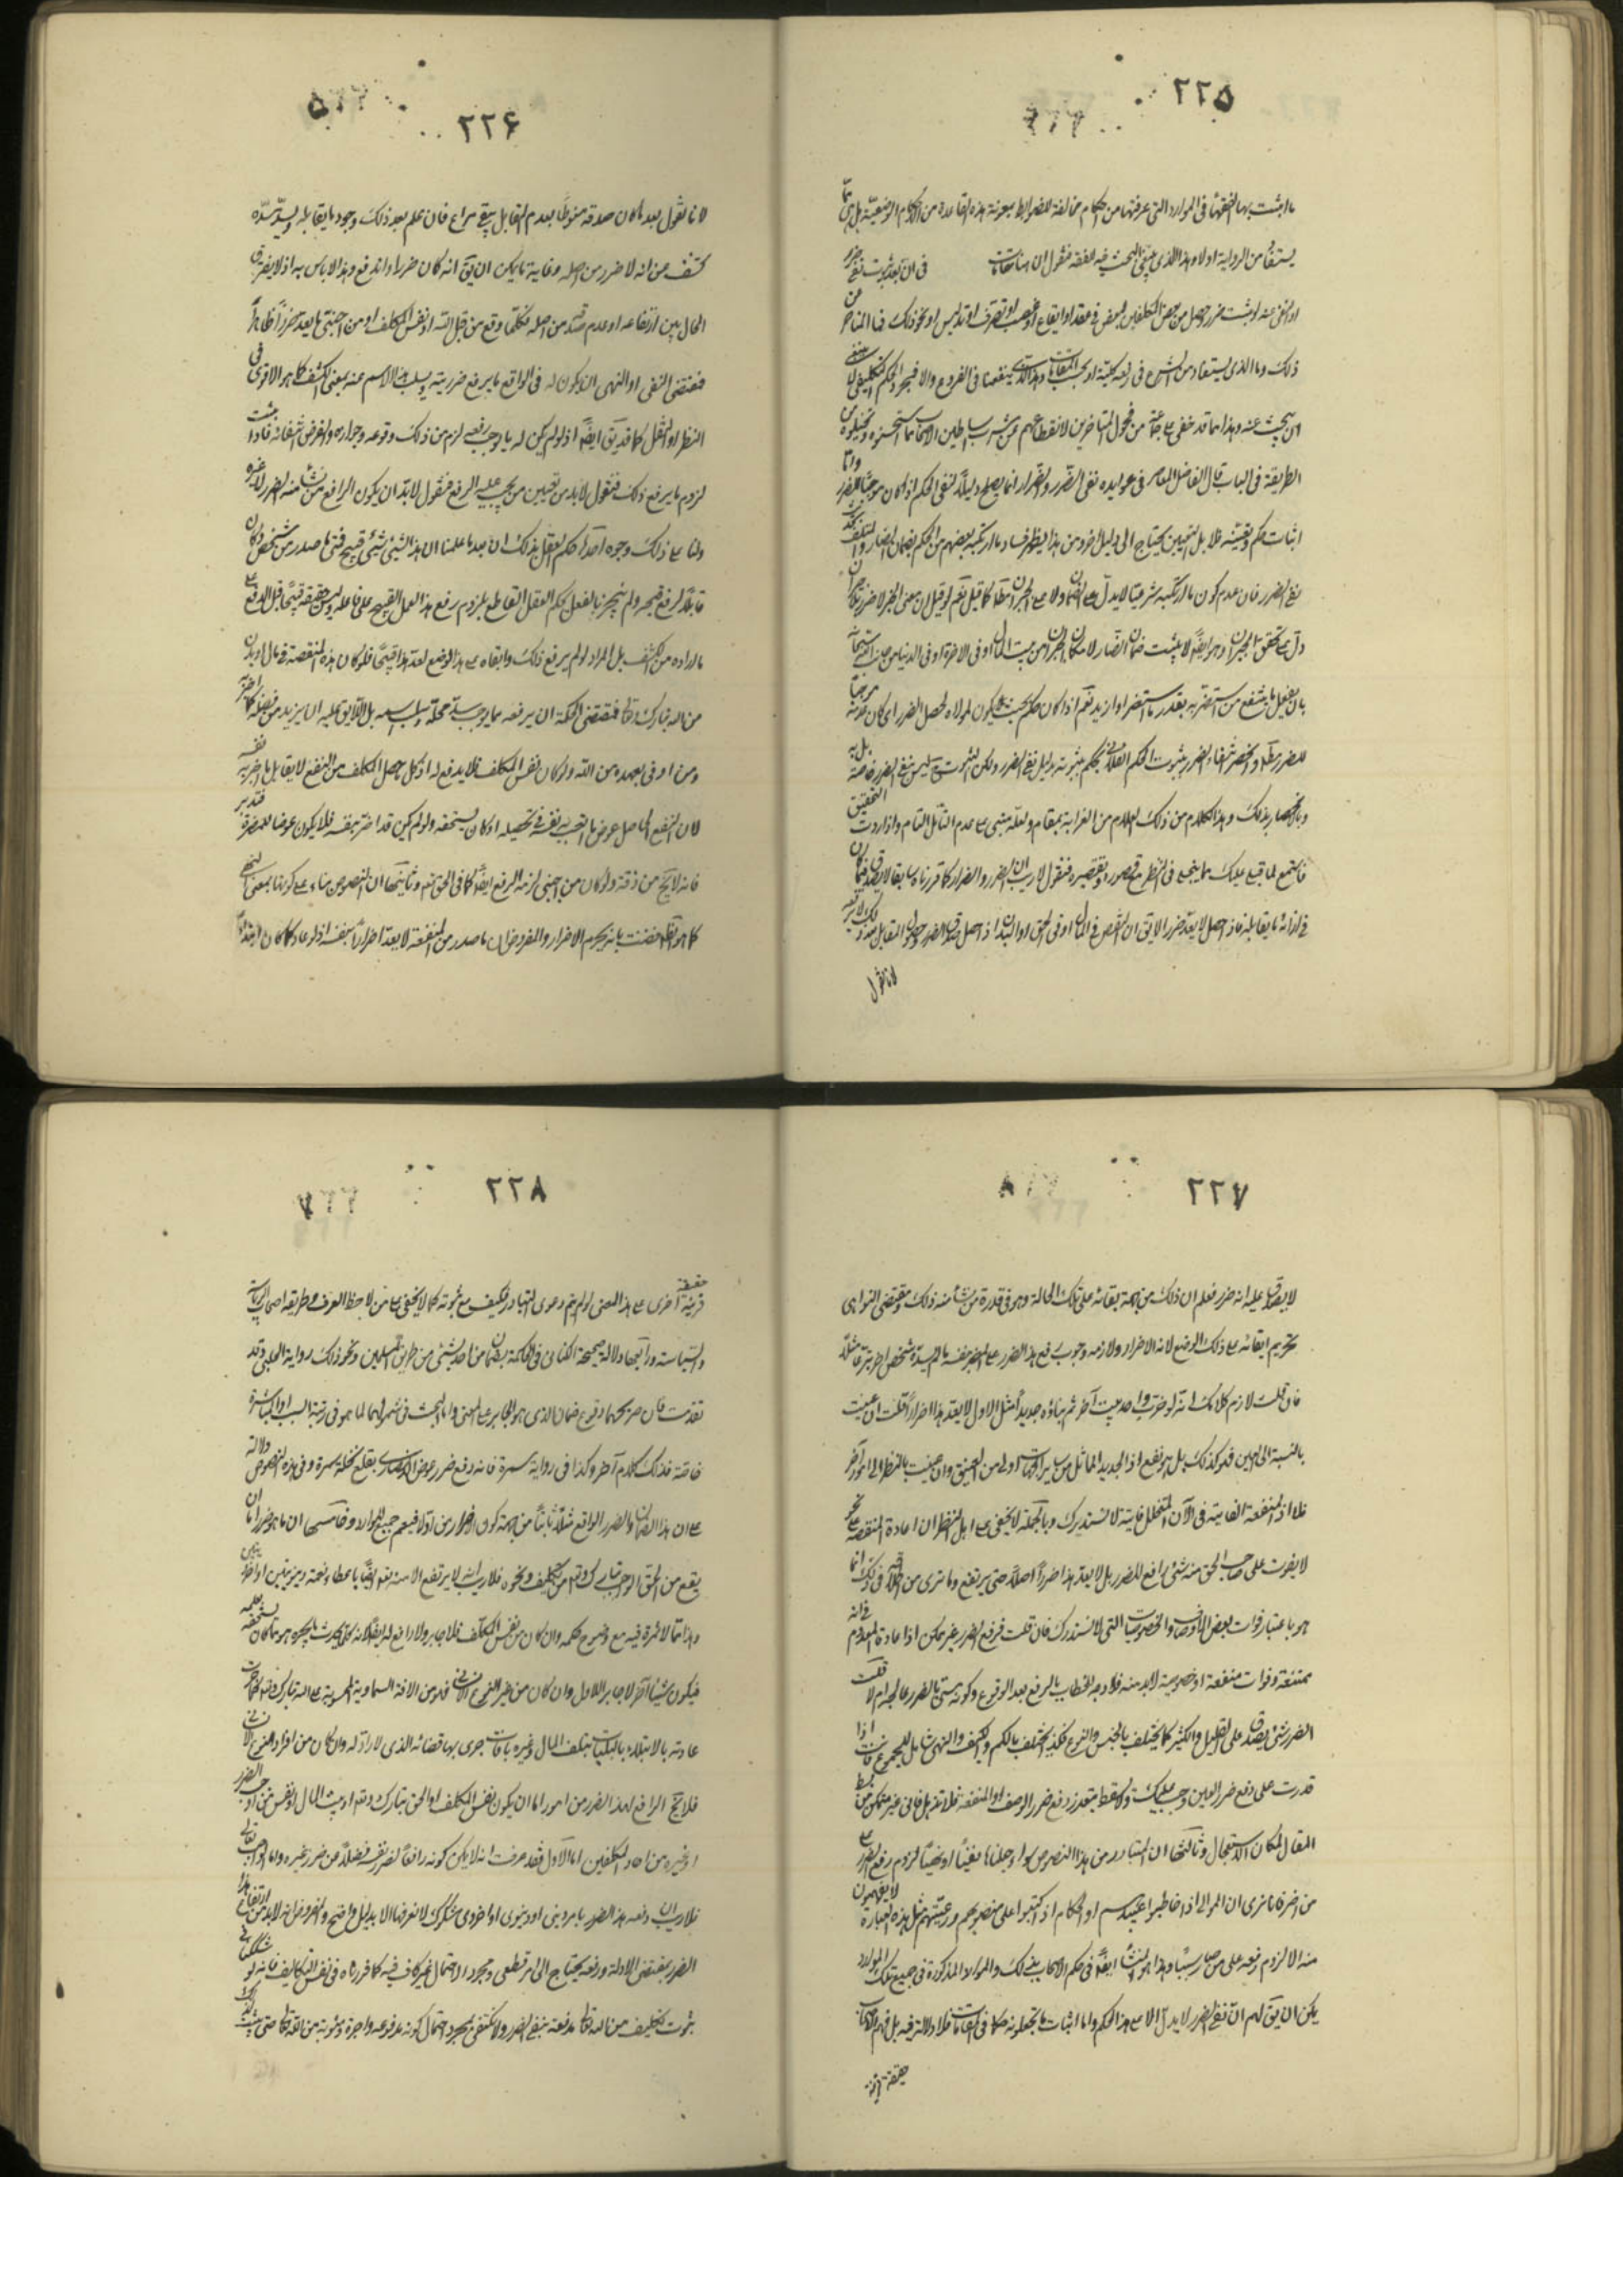 ٢٢٥
ما اثبت بها الفقهاء فى الموارد التى عرفتها من احكام مخالفة للضوابط بمعونة هذه القاعدة من الاحكام الوضعيّة بل
يستفاد من الرواية اولا وهذا الذى ينبغى البحث فيه للفقه فنقول ان هنا مقامات فى ان بعد ثبوت نفى
او النهى عنه لو ثبت ضرر حصل من بعض المكلفين لبعض فى عقد او ايقاع او غصب او تصرف او تدليس او نحو ذلك فما المناص عن
ذلك وما الذى يستفاد من الشرع فى رفعه كلية او بحسب المقامات وهذا الذى ينفعنا فى الفروع والا فقبحه والحكم التكليفى لا ينبغى
ان يبحث عنه وهذا مما قد خفى على جماعة من فحول المتاخرين لانقطاعهم عن مشرب اساطين الاصحاب
الطريقة فى الباب قال الفاضل المعاصر فى عوايده نفى الضرر والضرار انما يصلح دليلا لنفى الحكم اذا كان موجبا للضرر واما
اثبات حكم وتعيينه فلا بل التعيين يحتاج الى دليل اخر ومن هذا يظهر فساد ما ارتكبه بعضهم من الحكم بضمان الضار والمتلف
نفى الضرر فان عدم كون ما ارتكبه شرعيا لا يدل على الضمان ولا على الجبران مطلقا كما قيل نعم لو قيل ان معنى الخبر لا ضرر بلا جبران
دل على تحقق الجبران وهو ايضا لا يثبت ضمان الضار لامكان الجبران من بيت المال او فى الاخرة او فى الدنيا من جانب الله سبحانه
بان يفعل ما ينتفع من استضر به بقدر ما استضر او ازيد نعم اذا كان حكم بحيث يكون لولاه لحصل الضرر اى كان عدمه موجبا
للضرر مطلقا وانحصر انتفاء الضرر بثبوت الحكم الفلانى يحكم بثبوته بدليل نفى الضرر ولكن الثبوت ح ليس بنفى الضرر خاصة بل به
وبالانحصار بذلك وهذا الكلام من ذلك العلام من الغرابة بمقام ولعله مبنى على عدم التامل التام واذا اردت التحقيق
فاستمع لما يتلى عليك مما ينجلى فى النظر مع قصوره وتقصيره فنقول لا ريب ان الضرر والضرار كما قررناه سابقا لا يصدق
فى ازائه ما يقابله فاذا حصل لا يعد ضررا لا يق ان النقص فى المال او فى الحق او البدن اذا حصل صدق الضرر وحصول المقابل بعد ذلك لا يرفعه
لانا نقول
٢٢٦
لانا نقول بعد ما كان صدقه منوطا بعدم التقابل يبقى مراعى فان علم بعد ذلك وجود ما يقابله ويسد مسده
كشف عن انه لا ضرر من اصله وغاية ما يمكن ان يق انه كان ضررا واندفع وهذا لا باس به اذ لا يفرق
الحال بين ارتفاعه او عدم صدقه من اصله فكلما وقع من قبل الله او نفس المكلف او من اجنبى ما يعد ضررا ظاهرا
فمقتضى النفى او النهى ان يكون له فى الواقع ما يرفع ضرريته ويسلب هذا الاسم عنه بمعنى الكشف كما هو الاقوى فى
النظر او النقل كما قد يق ايضا اذ لو لم يكن له ما يوجب رفعه لزم من ذلك وقوعه وجوازه والفرض انتفائه فاذا ثبت
لزوم ما يرفع ذلك فنقول لا بد من تعيين من يجب عليه الرفع فنقول لا بد ان يكون الرافع من نشأ منه الضرر لا غيره
ولنا على ذلك وجوه احدها حكم العقل بذلك اذ بعد ما علمنا ان هذا الشيئ شيئ قبيح فمتى ما صدر من شخص وكان
قابلا لرفع قبحه ولم ينجبر بالفعل يحكم العقل القاطع بلزوم رفع هذا العمل القبيح على فاعله
ما اراده من الكشف بل المراد لو لم يرفع ذلك وابقاه على هذا الوضع لعد هذا قبيحا فلو كان هذه المنقصة فى مال او بدن
من الله تبارك وتعالى فمقتضى الحكمة ان يرفعه بما يوجب سد محله بل اللايق عليه ان يزيد من فضله
ومن اوفى بعهده من الله ولو كان لنفس المكلف فلا يدفع له اذ كل ما حصل المكلف من النفع لا يقابل ما اضر به نفسه
لان النفع الحاصل عوض ما اتعب به نفسه فى تحصيله او كان يستحقه ولو لم يكن قد اضر بنفسه فلا يكون عوضا للمضرة فتدبر
فانه لا يخ من دقة ولو كان من اجنبى لزمه الرفع ايضا كما فى الحق نعم وثانيها ان النصوص بناء على كونها بمعنى النهى
كما هو الظاهر قضت بانه يحرم الاضرار والمفروض ان ما صدر من المنقصة لا يعد اضرارا بنفسه اذ لو عاد كما كان ابتداء
٢٢٧
لا يصدق عليه انه ضرر فعلم ان ذلك من جهة بقائه على تلك الحالة وهو فى قدرة من نشأ منه ذلك ومقتضى النواهى
تحريم ابقائه على ذلك الوضع لانه الاضرار ولازمه وجوب رفع هذا الضرر على المضر بنفسه
فان قلت لازم كلامك انه لو خرب واحد بيت آخر ثم بناؤه جديدا مثل الاول لا يعد هذا اضرارا قلت ان عنيت
بالنسبة الى العين فهو كذلك بل هو نفع اذ الجديد المماثل من ساير الجهات اولى من العتيق وان عنيت بالنظر الى امور آخر
فلا اذ المنفعة الفايتة فى الآن المتخلل فايتة لا تستدرك وبالجملة لا يخفى على اهل النظر ان اعادة المنقصة على نحو
لا يفوت على صاحب الحق منه شيئ رافع للضرر بل لا يعد هذا ضررا اصلا حتى يرتفع وما ترى من الكلام فى ذلك انما
هو باعتبار فوات بعض الاوصاف والخصوصيات التى لا تستدرك فان قلت فرفع الضرر غير ممكن اذ اعادة المعدوم
ممتنعة وفوات منفعة او خصوصية لا بد منه فلا وجه للخطاب بالرفع بعد الوقوع وكونه منهى بالضرر قلت
الضرر شئ يصدق على القليل والكثير كما يختلف بالجنس والنوع فكذا يختلف بالكم والكيف والنهى شامل للجميع فان اذا
قدرت على دفع ضرر العين وجب عليك ولا يسقط بتعذر دفع ضرر الوصف او المنفعة
المقال لمكان الاستعجال وثالثها ان المتبادر من هذا النصوص سواء جعلناها نفيا او نهيا لزوم رفع الضرر على
من اضره كما ترى ان الموالى اذا خاطبوا عبيدهم او الحكام اذا كتبوا على منصوبهم ورعيتهم مثل هذه العبارة لا يفهمون
منه الا لزوم رفعه على من صار سببا وهذا هو المنشأ ايضا فى حكم الاصحاب بذلك والموارد المذكورة فى جميع تلك الموارد
يمكن ان يق لهم ان نفى الضرر لا يدل الا على هذا الحكم واما اثبات ما يجعلونه حكما فى المقامات فلا دلالة فيه بل فهم الاصحاب
حقيقة قرينة
٢٢٨
قرينة حقيقة اخرى على هذا المعنى لو لم يتم دعوى التبادر فكيف مع ثبوته كما لا يخفى على من لاحظ العرف وطريقة اصحاب الرياسة
والسياسة ورابعها دلالة صحيحة الكنانى فى الحكم بضمان من احدث شيئ من طريق المسلمين ونحو ذلك رواية الحلبى وقد
تقدمت فان صريحهما وقوع ضمان الذى هو الجابر على المعنى واما البحث فى شمولها لما هو فى مرتبة السبب او المباشرة
خاصة فذلك كلام آخر وكذا فى رواية سمرة فانه دفع ضرر عرض الانصارى بقلع نخلة سمرة وفى هذه النصوص دلالة
على ان هذا الضمان والضرر الواقع مثلا ثابتا من جهة كون الضرر من اولا فيعم جميع الموارد وخامسها ان ما هو ضرر اما ان
يقع من الحق الواجب تبارك وتعالى من تكليف ونحوه فلا ريب انه لا يرتفع الا منه تعالى ايضا باعطاء نعمة دنيوية او اخروية
وهذا مما لا ثمرة فيه مع وضوح حكمه وان كان من نفس المكلف فلا جابر ولا رافع له ايضا لانه كلما يحدث ما يجبره هو مما كان يستحقه
فيكون شيئا آخر لا جابر للاول وان كان من غير النوع الانسانى فهو من الافة السماوية المحسوبة على الله تبارك وتعالى كما جرت
عادته بالابتلاء بالبليات بتلف المال وغيره بافات جرى بها قضائه الذى لا راد له وان كان من افراد النوع الانسانى
فلا يخ الرافع لهذا الضرر من امور اما ان يكون نفس المكلف او الحق تبارك وتعالى او بيت المال او نفس من اوجد الضرر
او غيره من احاد المكلفين اما الاول فقد عرفت انه لا يمكن كونه رافعا لضرر نفسه فضلا من ضرر غيره واما الواجب تعالى
فلا ريب ان دفعه هذا الضرر بامر دينى او دنيوى او اخروى مشكوك لا نعرفها الا بدليل واضح والمفروض انه لا بد من ارتفاع هذا
الضرر بمقتضى الادلة ورفعه يحتاج الى امر قطعى ومجرد الاحتمال غير كاف فيه كما قررناه فى نفس التكاليف فانه لو شككنا فى
ثبوت تكليف من الله تعالى ندفعه بنفى الضرر ولا نكتفى بمجرد احتمال كونه مدفوعه باجرة ومثوبة من الله تعالى حتى يثبت